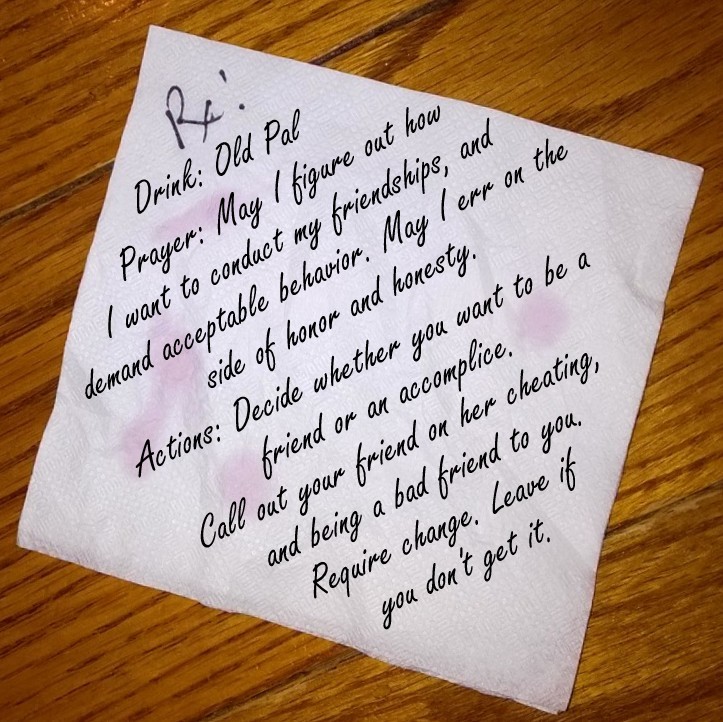 Rx:
Drink: Old Pal
Prayer: May I figure out how
I want to conduct my friendships, and
demand acceptable behavior. May I err on the
side of honor and honesty.
Actions: Decide whether you want to be a
friend or an accomplice.
Call out your friend on her cheating,
and being a bad friend to you.
Require change. Leave if
you don't get it.